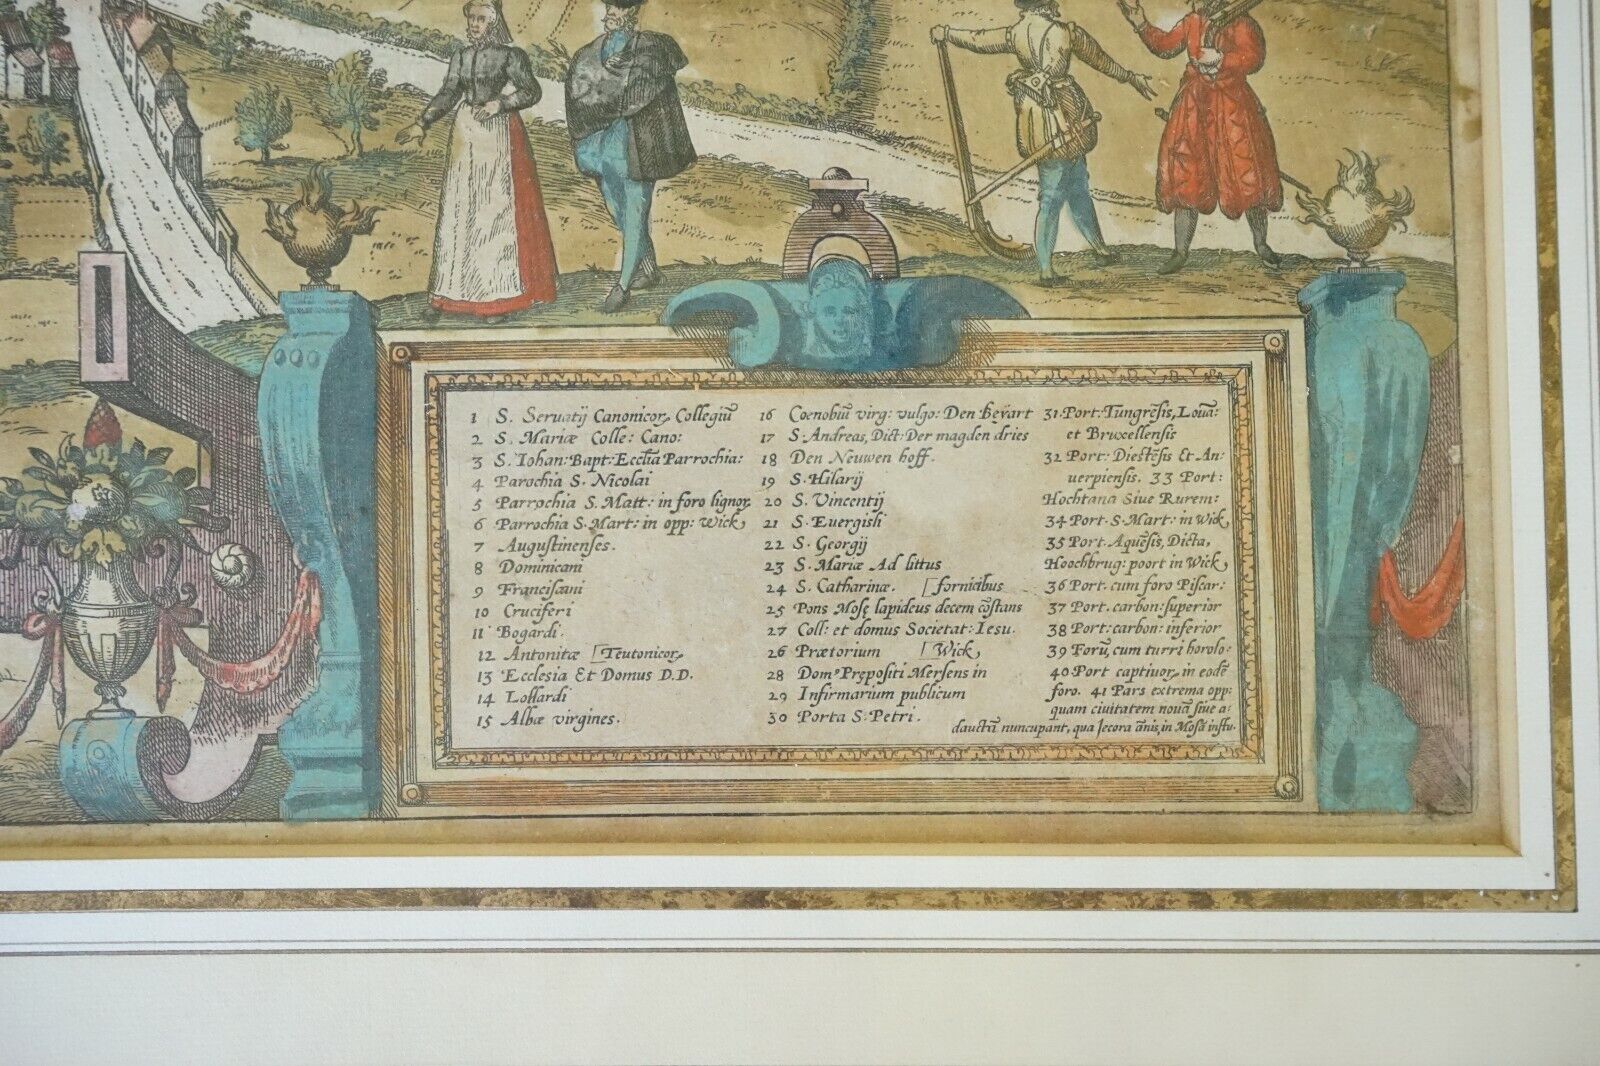 1 S. Seruatij Canonicor, Collegiũ
2 S. Mariæ Colle: Cano:
3 S. Iohan: Bapt: Ecclīa Parrochia:
4 Parochia S. Nicolai
5 Parrochia S. Matt: in foro lignor,
6 Parrochia S. Mart: in opp: Wick,
7 Augustinenses.
8 Dominicani
9 Franciscani
10 Cruciferi
11 Bogardi.
12 Antonitæ [Teutonicor,
13 Ecclesia Et Domus D.D.
14 Lollardi
15 Albæ virgines.
16 Coenobiũ virg: vulgo: Den Beÿart
17 S. Andreas, Dict: Der magden dries
18 Den Neuwen hoff.
19 S. Hilarij
20 S. Vincentij
21 S. Euergisli
22 S. Georgij
23 S. Mariæ Ad littus
24 S. Catharinæ [fornicibus
25 Pons Mosę lapideus decem cõstans
27 Coll: et domus Societat: Iesu.
26 Prætorium [Wick,
28 Domº Prępositi Mersens in
29 Infirmarium publicum
30 Porta S. Petri.
31. Port. Tungrẽsis, Louā:
et Bruxellensis
32 Port: Diestẽsis Et An:
uerpiensis. 33 Port:
Hochtana Siue Rurem:
34 Port. S. Mart: in Wick,
35 Port. Aquẽsis, Dicta,
Hoochbrug: poort in Wick,
36 Port. cum foro Piscar:
37 Port. carbon: superior
38 Port: carbon: inferior
39 Forũ, cum turri horolo:
40. Port captiuor, in eodẽ
foro. 41 Pars extrema opp:
quam ciuitatem nouã siue a:
dauctã nuncupant, qua Iecora ãnis, in Mosã influ.